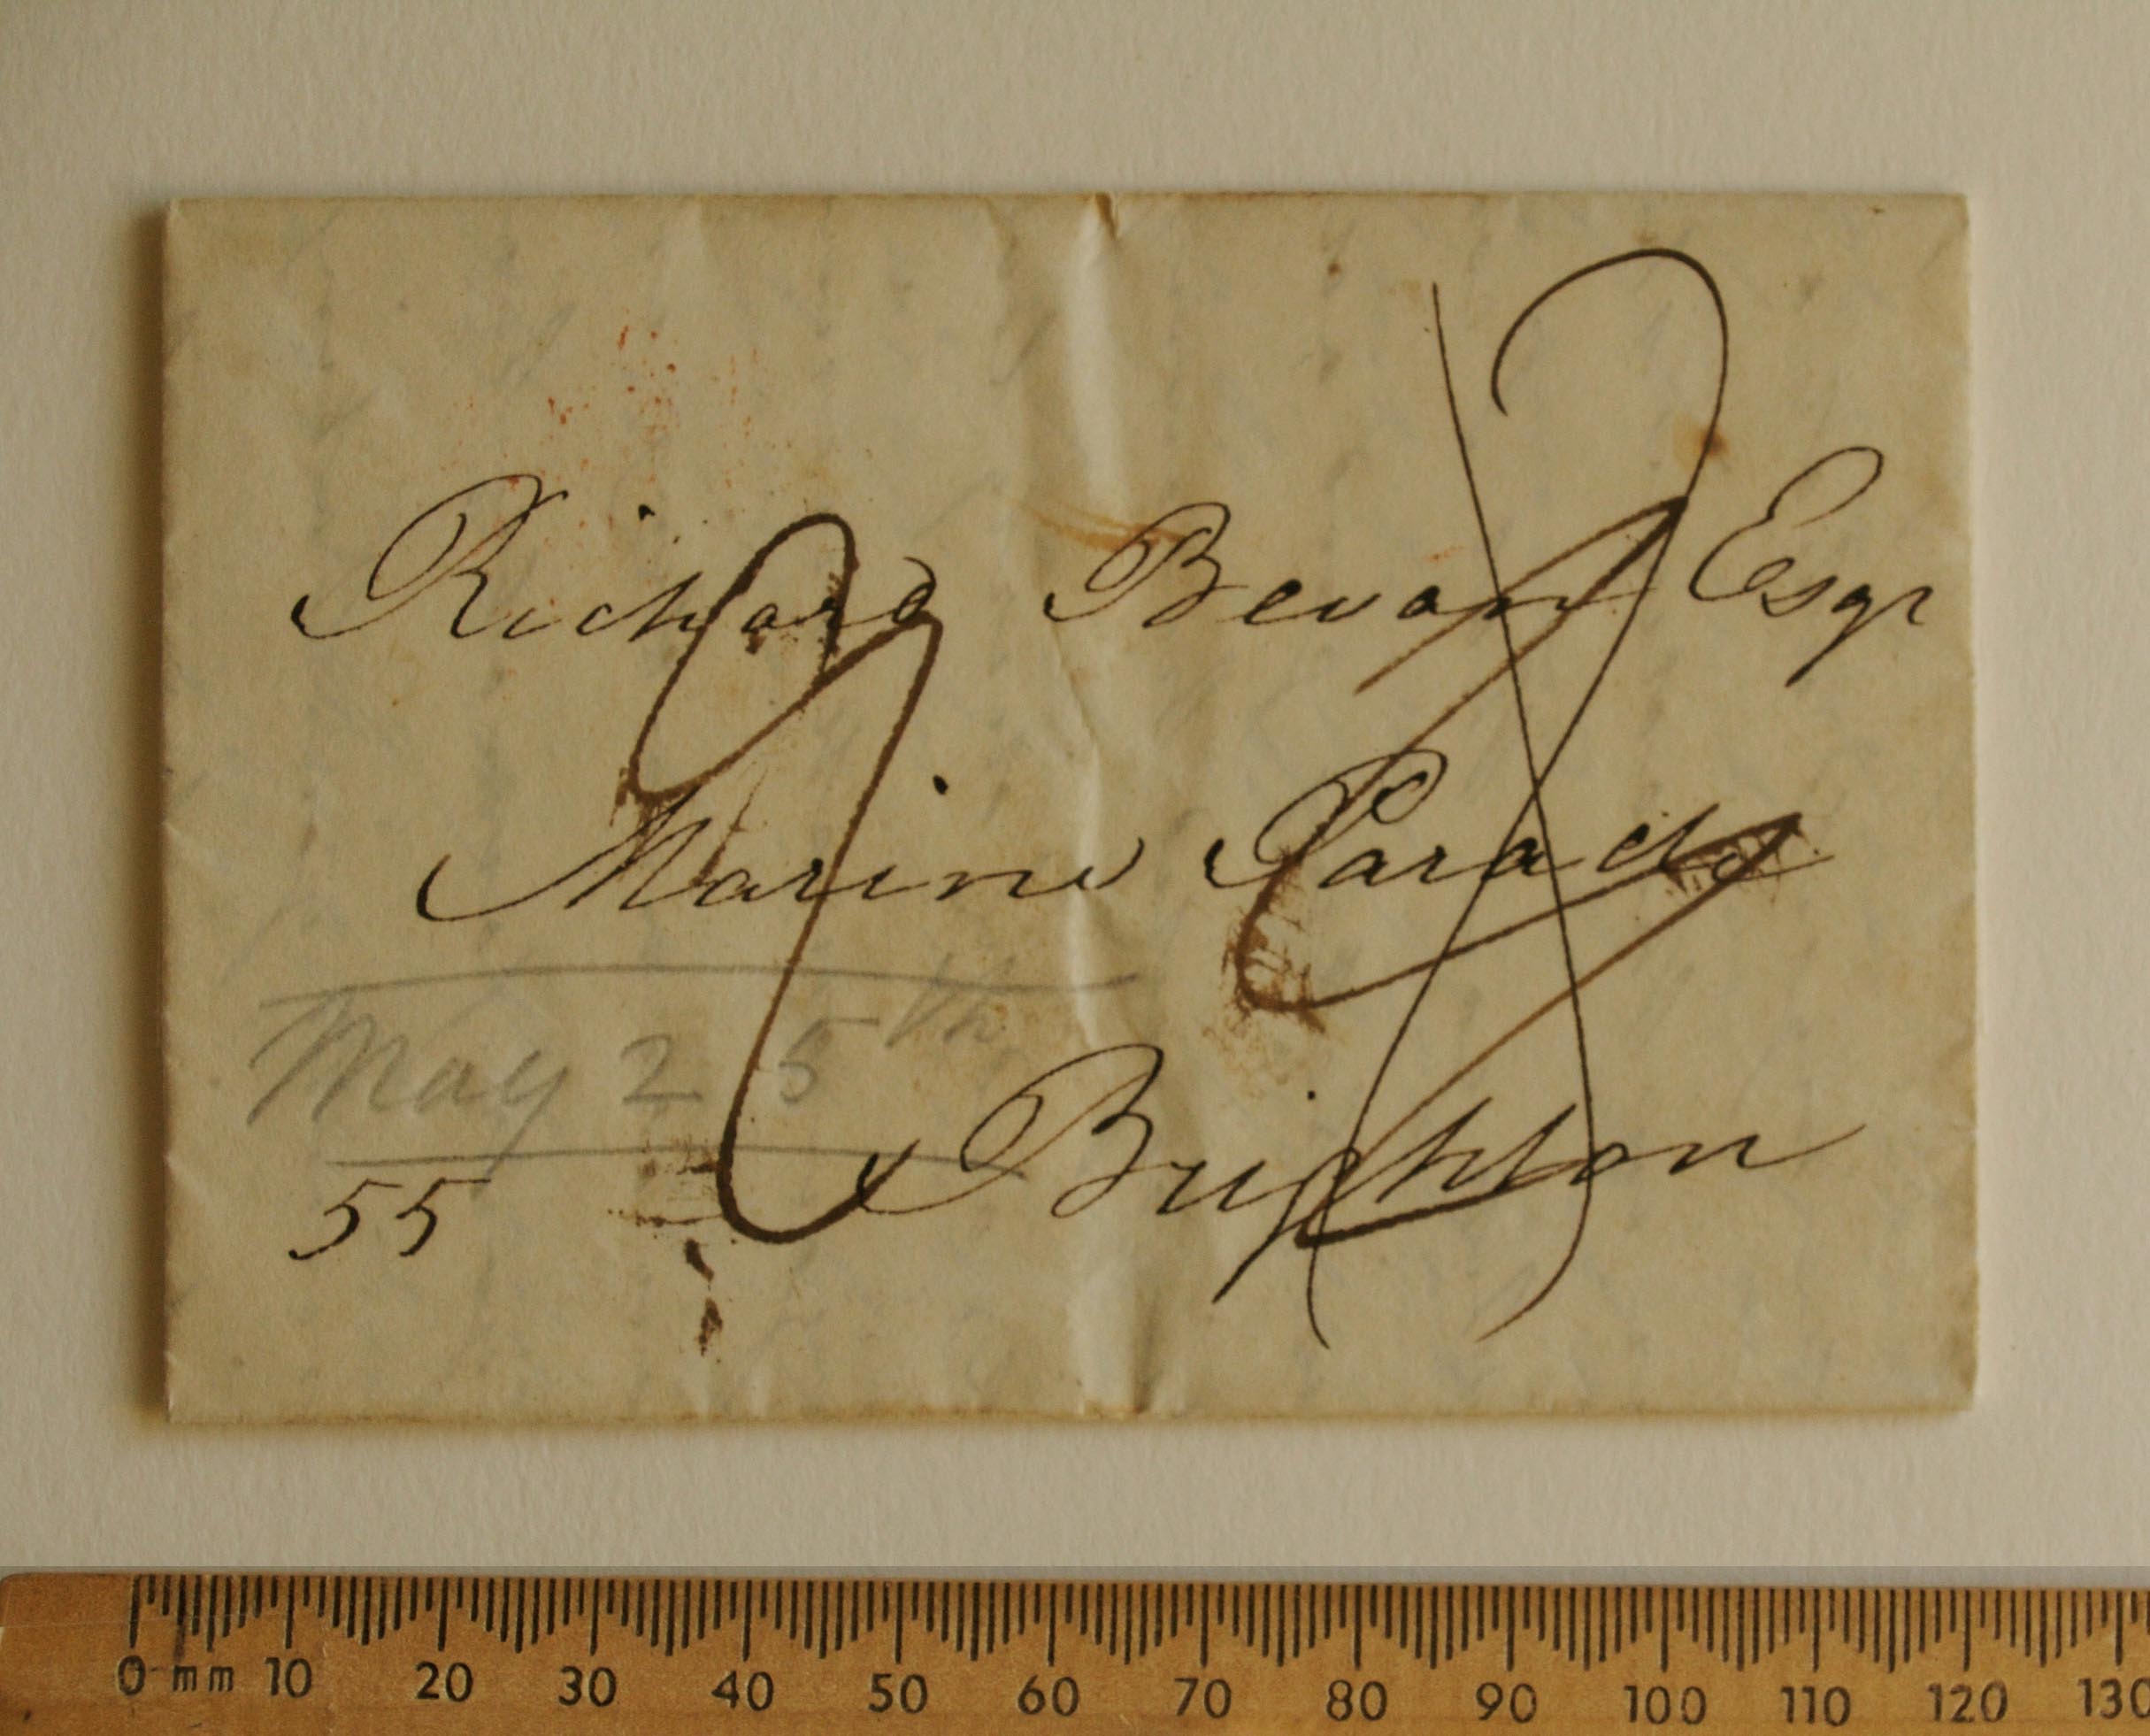 Richard Bevan Esqr
Marine Parade
May 25th
Brighton
55
0 mm 10 20 30 40 50 60 70 80 90 100 110 120 130